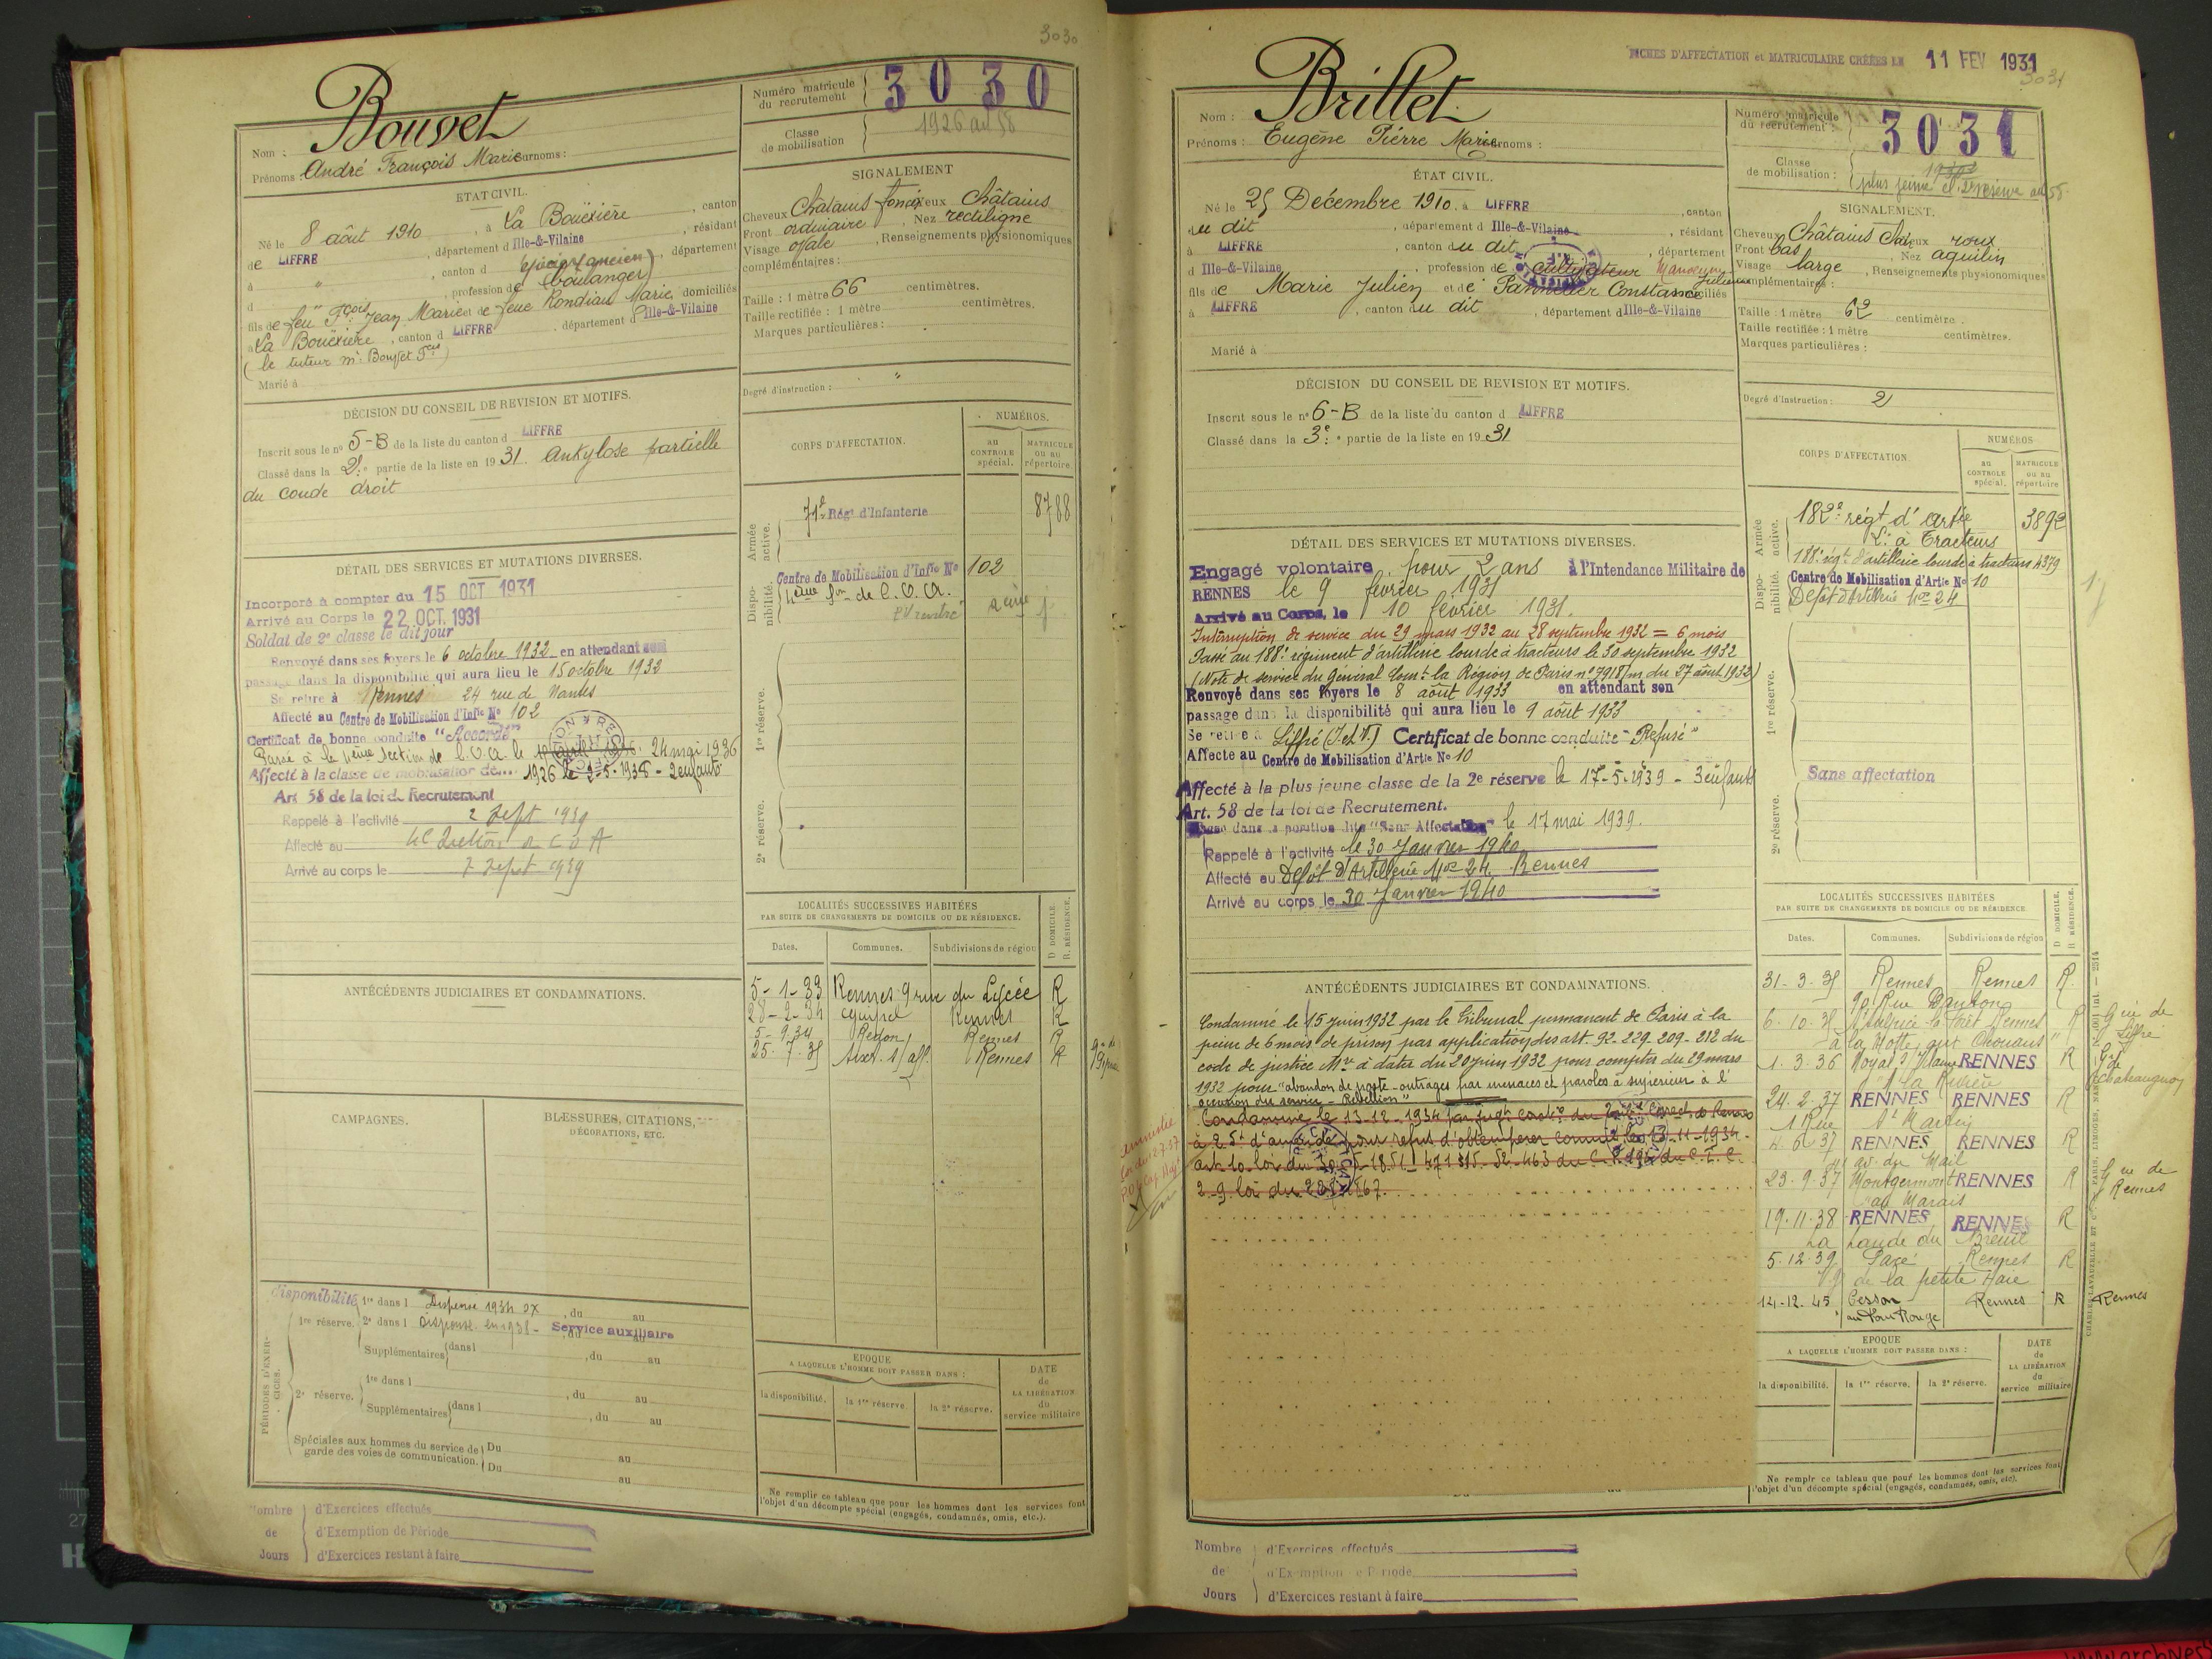 3030
Bouvet
Nom :
Prénoms : André François Marie Surnoms :
ETAT CIVIL.
Né le 8 août 1910, à La Bouëxière, canton
de LIFFRE, département d Ille-&-Vilaine, résidant
à ", canton d épicier (ancien, département
d ", profession de boulanger)
fils de feu Fçois Jean Marie et de feue Rondiau Marie, domiciliés
à La Bouëxière, canton d LIFFRE, département d Ille-&-Vilaine
(le tuteur Mr Bouvet Fçois)
Marié à
DÉCISION DU CONSEIL DE REVISION ET MOTIFS.
Inscrit sous le n° 5-B de la liste du canton d LIFFRE
Classé dans la 2e partie de la liste en 1931. Ankylose partielle
du coude droit
DÉTAIL DES SERVICES ET MUTATIONS DIVERSES.
Incorporé à compter du 15 OCT 1931
Arrivé au Corps le 22 OCT. 1931
Soldat de 2e classe le dit jour
Renvoyé dans ses foyers le 6 octobre 1932 en attendant son
passage dans la disponibilité qui aura lieu le 15 octobre 1932
Se retire à Rennes 24 rue de Nantes
Affecté au Centre de Mobilisation d'Infie N° 102
Certificat de bonne conduite "Accordé"
Passé à la 4ème Section de C.O.A. le 24 mai 1936
Affecté à la classe de mobilisation de 1926 le 2-5-1938 - 2 enfants
Art 58 de la loi de Recrutement
Rappelé à l'activité 2 Sept 1939
Affecté au 4e Section de C O A
Arrivé au corps le 7 Sept 1939
ANTÉCÉDENTS JUDICIAIRES ET CONDAMNATIONS.
CAMPAGNES.
BLESSURES, CITATIONS,
DÉCORATIONS, ETC.
PÉRIODES D'EXERCICES.
disponibilité
1re réserve. 1re dans l Dispensé 1934 , du au
2e dans l Dispensé en 1938 - Service auxiliaire
Supplémentaires dans l , du au
2e réserve. 1re dans l , du au
Supplémentaires dans l , du au
Spéciales aux hommes du service de garde des voies de communication. Du au
Du au
Nombre de Jours
d'Exercices effectués
d'Exemption de Période
d'Exercices restant à faire
Numéro matricule du recrutement 3030
Classe de mobilisation 1926 art 58
SIGNALEMENT
Cheveux Châtains foncé Yeux Châtains
Front ordinaire, Nez rectiligne
Visage ovale, Renseignements physionomiques
complémentaires :
Taille : 1 mètre 66 centimètres.
Taille rectifiée : 1 mètre centimètres.
Marques particulières :
Degré d'instruction : "
CORPS D'AFFECTATION.
NUMÉROS.
au CONTROLE spécial.
MATRICULE ou au répertoire.
Armée active.
71e Régt d'Infanterie 8788
Disponibilité.
Centre de Mobilisation d'Infie N° 102
4ème Son de C.O.A.
1re réserve.
2e réserve.
LOCALITÉS SUCCESSIVES HABITÉES
PAR SUITE DE CHANGEMENTS DE DOMICILE OU DE RÉSIDENCE.
Dates. Communes. Subdivisions de région D. DOMICILE. R. RÉSIDENCE.
5-1-33 Rennes 9 rue du Lycée R
28-2-34 Rennes R
5-9-34 Redon Rennes R
25-7-35 Rennes R
EPOQUE
A LAQUELLE L'HOMME DOIT PASSER DANS :
la disponibilité. la 1re réserve. la 2e réserve.
DATE de LA LIBÉRATION du service militaire
Ne remplir ce tableau que pour les hommes dont les services font
l'objet d'un décompte spécial (engagés, condamnés, omis, etc.).
FICHES D'AFFECTATION et MATRICULAIRE CRÉÉES LE 11 FEV 1931
3031
Brillet
Nom :
Prénoms : Eugène Pierre Marie Surnoms :
ÉTAT CIVIL.
Né le 25 Décembre 1910, à LIFFRE, canton
du dit, département d Ille-&-Vilaine, résidant
à LIFFRE, canton du dit, département
d Ille-&-Vilaine, profession de cultivateur
fils de Marie Julien et de Pannetier Constance Julienne domiciliés
à LIFFRE, canton du dit, département d Ille-&-Vilaine
Marié à
DÉCISION DU CONSEIL DE REVISION ET MOTIFS.
Inscrit sous le n° 6-B de la liste du canton d LIFFRE
Classé dans la 3e partie de la liste en 1931
DÉTAIL DES SERVICES ET MUTATIONS DIVERSES.
Engagé volontaire pour 2 ans à l'Intendance Militaire de
RENNES le 9 février 1931
Arrivé au Corps, le 10 février 1931.
Interruption de service du 29 mars 1932 au 28 septembre 1932 = 6 mois
Passé au 188e régiment d'artillerie lourde à tracteurs le 30 septembre 1932
(Note de service du Général Comt la Région de Paris n° 7918/m du 27 août 1932)
Renvoyé dans ses foyers le 8 août 1933 en attendant son
passage dans la disponibilité qui aura lieu le 9 août 1933
Se retire à Liffré (I. et V.) Certificat de bonne conduite "Refusé"
Affecté au Centre de Mobilisation d'Artie N° 10
Affecté à la plus jeune classe de la 2e réserve le 17-5-1939 - 3 enfants
Art. 58 de la loi de Recrutement.
Classé dans la position dite "Sans Affectation" le 17 mai 1939.
Rappelé à l'activité le 30 Janvier 1940
Affecté au Dépôt d'Artillerie N° 24 Rennes
Arrivé au corps le 30 Janvier 1940
ANTÉCÉDENTS JUDICIAIRES ET CONDAMNATIONS.
Condamné le 15 juin 1932 par le Tribunal permanent de Paris à la
peine de 6 mois de prison par application des art. 92-229-209-212 du
code de justice Mre à dater du 20 juin 1932 pour compter du 29 mars
1932 pour "abandon de poste - outrages par menaces et paroles à supérieur à l'
occasion du service - Rébellion"
Condamné le 13-12-1934 par jugt contre du Trib. Correct. de Rennes
à 25f d'amende pour refus d'obtempérer commis le 13-11-1934.
Amnistié
Nombre de Jours
d'Exercices effectués
d'Exemption de Période
d'Exercices restant à faire
Numéro matricule du recrutement : 3031
Classe de mobilisation : plus jeune cl. 2e réserve art 58
SIGNALEMENT.
Cheveux Châtains clair Yeux roux
Front bas, Nez aquilin
Visage large, Renseignements physionomiques
complémentaires :
Taille : 1 mètre 62 centimètre.
Taille rectifiée : 1 mètre centimètres.
Marques particulières :
Degré d'instruction : 2
CORPS D'AFFECTATION
NUMÉROS
au CONTROLE spécial.
MATRICULE ou au répertoire
Armée active.
182e régt d'artie Lde à Tracteurs 3892
188e régt d'artillerie lourde à tracteurs 4379
Disponibilité.
Centre de Mobilisation d'Artie N° 10
Dépôt d'Artillerie N° 24
1re réserve.
2e réserve.
Sans affectation
LOCALITÉS SUCCESSIVES HABITÉES
PAR SUITE DE CHANGEMENTS DE DOMICILE OU DE RÉSIDENCE
Dates. Communes. Subdivisions de région D. DOMICILE. R. RÉSIDENCE.
31-3-35 Rennes Rennes R.
90 Rue Danton
6-10-35 St Sulpice la Forêt Rennes R Gie de Liffré
à la Motte aux Chouans
1.3.36 Noyal s/ Vilaine RENNES R Gie de Châteaugiron
à la Rivière
24.2.37 RENNES RENNES R
Rue St Martin
4.6.37 RENNES RENNES R
av. du Mail
23.9.37 Montgermont RENNES R Gie de Rennes
au Marais
19.11.38 RENNES RENNES R
La Lande du Breuil
5.12.39 Pacé Rennes R
de la petite Haie
14-12-45 Cesson Rennes R Rennes
au Tour Rouge
EPOQUE
A LAQUELLE L'HOMME DOIT PASSER DANS :
la disponibilité. la 1re réserve. la 2e réserve.
DATE de LA LIBÉRATION du service militaire
Ne remplir ce tableau que pour les hommes dont les services font
l'objet d'un décompte spécial (engagés, condamnés, omis, etc).